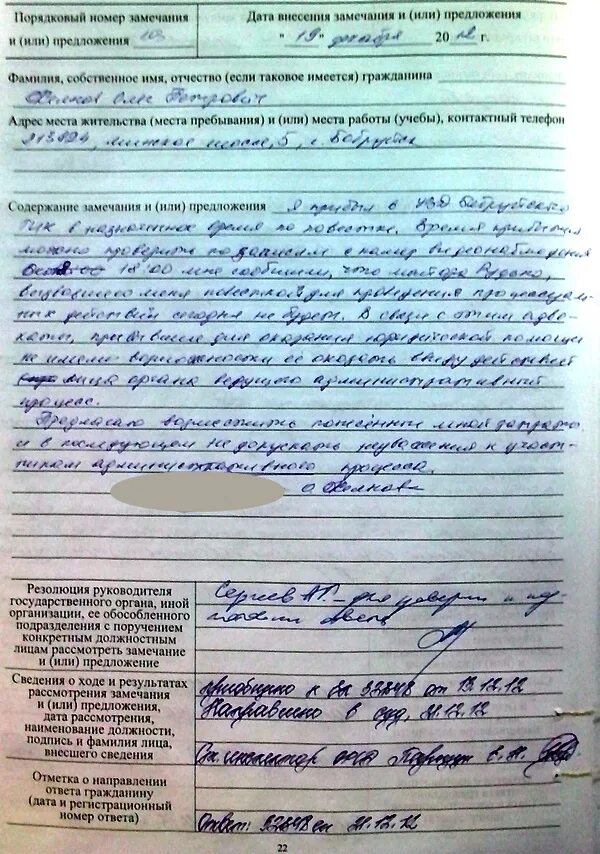 Порядковый номер замечания
и (или) предложения 103
Дата внесения замечания и (или) предложения
" 19 " декабря 2012 г.
Фамилия, собственное имя, отчество (если таковое имеется) гражданина
Олег Петрович
Адрес места жительства (места пребывания) и (или) места работы (учебы), контактный телефон
213824, Минское шоссе, 5, г. Бобруйск
Содержание замечания и (или) предложения Я прибыл в УВД Бобруйского
ГИК в назначенное время по повестке. Время прибытия
можно проверить по записям с камер видеонаблюдения
18:00 мне сообщили, что майора
вызвавшего меня повесткой для проведения процессуаль-
ных действий сегодня не будет. В связи с этим адво-
каты, прибывшие для оказания юридической помощи
не имели возможности её оказать ввиду действий
лица органа ведущего административный
процесс.
Предлагаю возместить понесённые мной затраты
и в последующем не допускать неуважения к участ-
никам административного процесса.
Резолюция руководителя
государственного органа, иной
организации, ее обособленного
подразделения с поручением
конкретным должностным
лицам рассмотреть замечание
и (или) предложение
Сергеев А.Г. - для
Сведения о ходе и результатах
рассмотрения замечания
и (или) предложения,
дата рассмотрения,
наименование должности,
подпись и фамилия лица,
внесшего сведения
приобщено к от 19.12.12
Направлено в суд, 21.12.12
Ст. инспектор
Отметка о направлении
ответа гражданину
(дата и регистрационный
номер ответа)
Ответ: 21.12.12
22